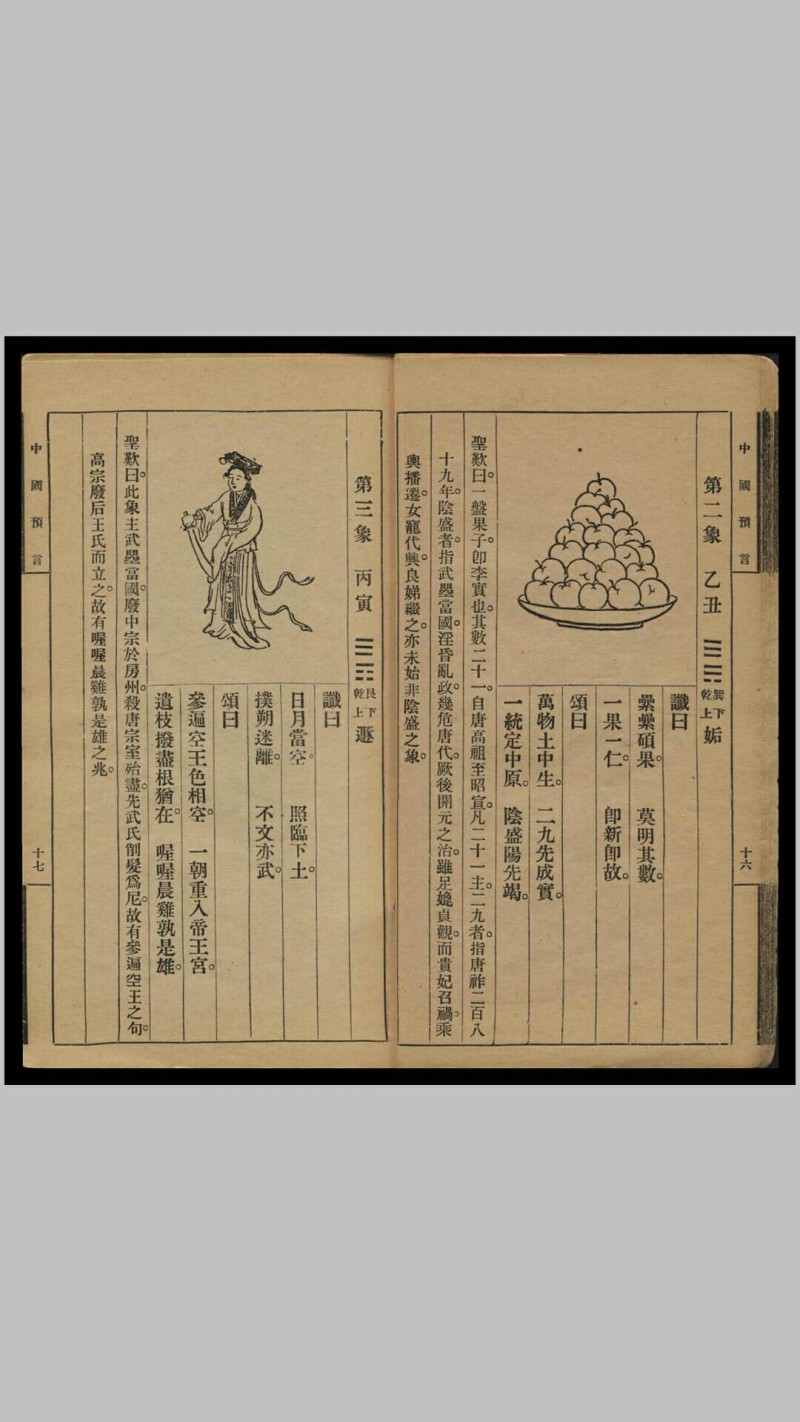 中國預言
十六
第二象 乙丑 巽下乾上 姤
讖曰
纍纍碩果。 莫明其數。
一果一仁。 卽新卽故。
頌曰
萬物土中生。 二九先成實。
一統定中原。 陰盛陽先竭。
聖歎曰。一盤果子卽李實也。其數二十一。自唐高祖至昭宣。凡二十一主。二九者。指唐祚二百八
十九年。陰盛者。指武曌當國。淫昏亂政。幾危唐代。厥後開元之治。雖足媲貞觀。而貴妃召禍。乘
輿播遷。女寵代興。良娣繼之。亦未始非陰盛之象。
第三象 丙寅 艮下乾上 遯
讖曰
日月當空。 照臨下土。
撲朔迷離。 不文亦武。
頌曰
參遍空王色相空。 一朝重入帝王宮。
遺枝撥盡根猶在。 喔喔晨雞孰是雄。
聖歎曰。此象主武曌當國。廢中宗於房州。殺唐宗室殆盡。先武氏削髮爲尼。故有參遍空王之句。
高宗廢后王氏而立之。故有喔喔晨雞孰是雄之兆。
中國預言
十七